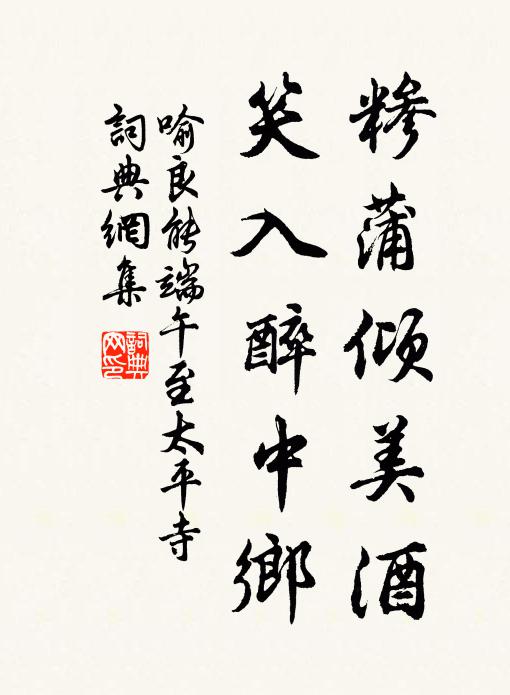 糝蒲傾美酒
笑入醉中鄉
喻良能端午至太平寺
詞典網集
詞典网印